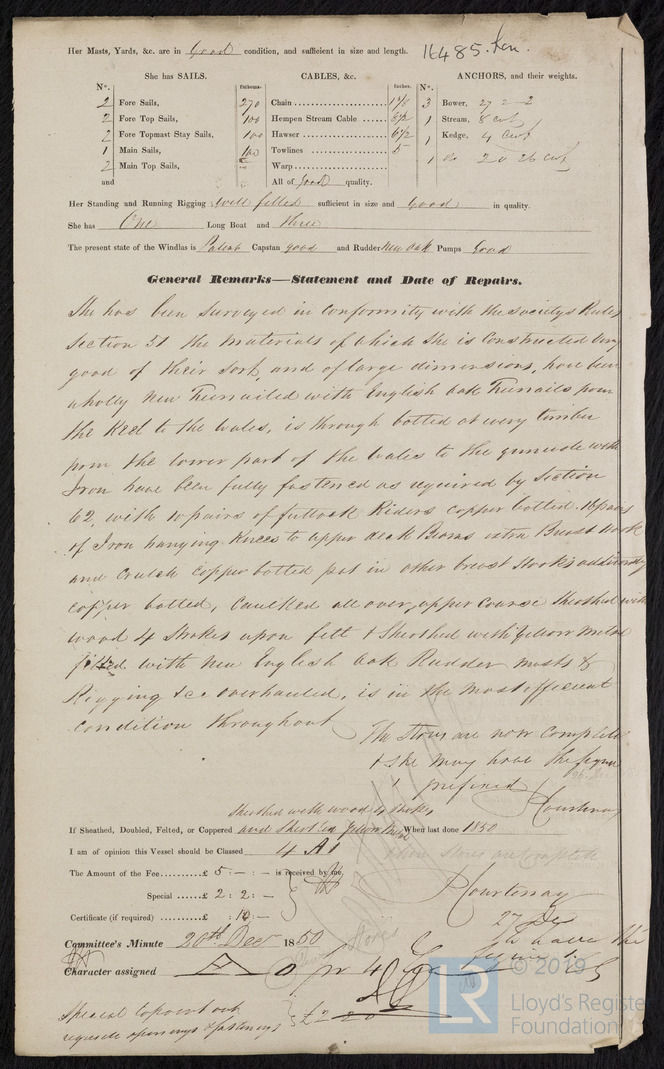 Her Masts, Yards, &c. are in Good condition, and sufficient in size and length.
16485. Lon.
She has SAILS. CABLES, &c. ANCHORS, and their weights.
N°. Fathoms. Inches. N°.
2 Fore Sails, 270 Chain 3 Bower, 27 2-2
2 Fore Top Sails, 100 Hempen Stream Cable 1 Stream, 8 cwt
2 Fore Topmast Stay Sails, 100 Hawser 6 1/2 1 Kedge, 4 Cwt
1 Main Sails, 100 Towlines 5 1 do 2 0 26 cwt
2 Main Top Sails, Warp
and All of Good quality.
Her Standing and Running Rigging Well fitted sufficient in size and Good in quality.
She has One Long Boat and three
The present state of the Windlas is Patent Capstan good and Rudder New Oak Pumps Good
General Remarks—Statement and Date of Repairs.
She has been Surveyed in Conformity with the societys Rules
Section 51 the Materials of which she is Constructed very
good of their sort, and of large dimensions, have been
wholly New Treenailed with English Oak Treenails from
the Keel to the Wales, is through bolted at every timber
from the lower part of the Wales to the gunwale with
Iron have been fully fastened as required by Section
62, with 10 pairs of futtock Riders copper bolted. 16 pairs
of Iron hanging Knees to upper deck Beams extra Breast Hook
and Crutch Copper bolted put in other breast Hooks additionally
copper bolted, Caulked all over, upper course Sheathed with
wood 4 Strakes upon felt & Sheathed with Yellow Metal
fitted with New English Oak Rudder Masts &
Rigging &c overhauled, is in the most efficient
condition throughout
The Stores are now Complete
& She may have the figure
1 prefixed Courtenay
Sheathed with wood 4 Strakes
If Sheathed, Doubled, Felted, or Coppered and Sheathed Yellow Metal When last done 1850
I am of opinion this Vessel should be Classed 4 A1 when Stores are Complete
The Amount of the Fee......£ 5 : - : - is received by me,
Special ......£ 2 : 2 : - Courtenay
Certificate (if required) ......£ : 10 : - 27 De
Committee's Minute 20th Decr 1850 have the
figure 1
Character assigned
Special to point out
requisite openings & fastenings } £2
© 2019
LR
Lloyd's Register
Foundation